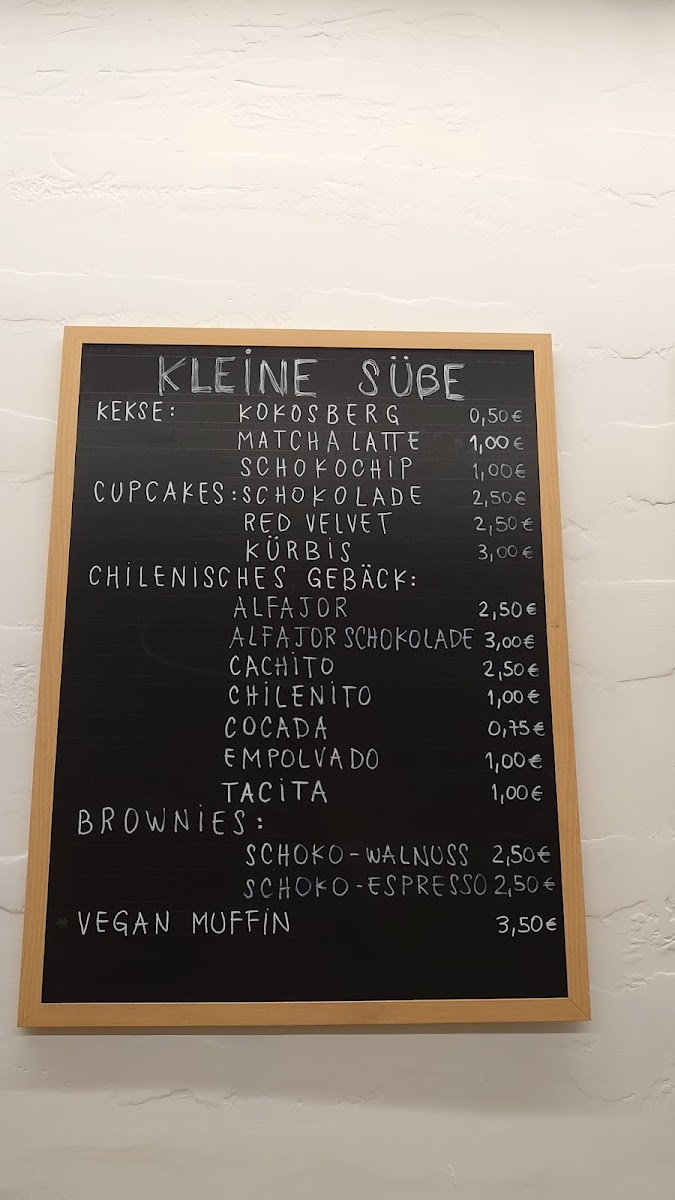 KLEINE SÜßE
KEKSE: KOKOSBERG 0,50€
MATCHA LATTE 1,00€
SCHOKOCHIP 1,00€
CUPCAKES: SCHOKOLADE 2,50€
RED VELVET 2,50€
KÜRBIS 3,00€
CHILENISCHES GEBÄCK:
ALFAJOR 2,50€
ALFAJOR SCHOKOLADE 3,00€
CACHITO 2,50€
CHILENITO 1,00€
COCADA 0,75€
EMPOLVADO 1,00€
TACITA 1,00€
BROWNIES:
SCHOKO-WALNUSS 2,50€
SCHOKO-ESPRESSO 2,50€
* VEGAN MUFFIN 3,50€